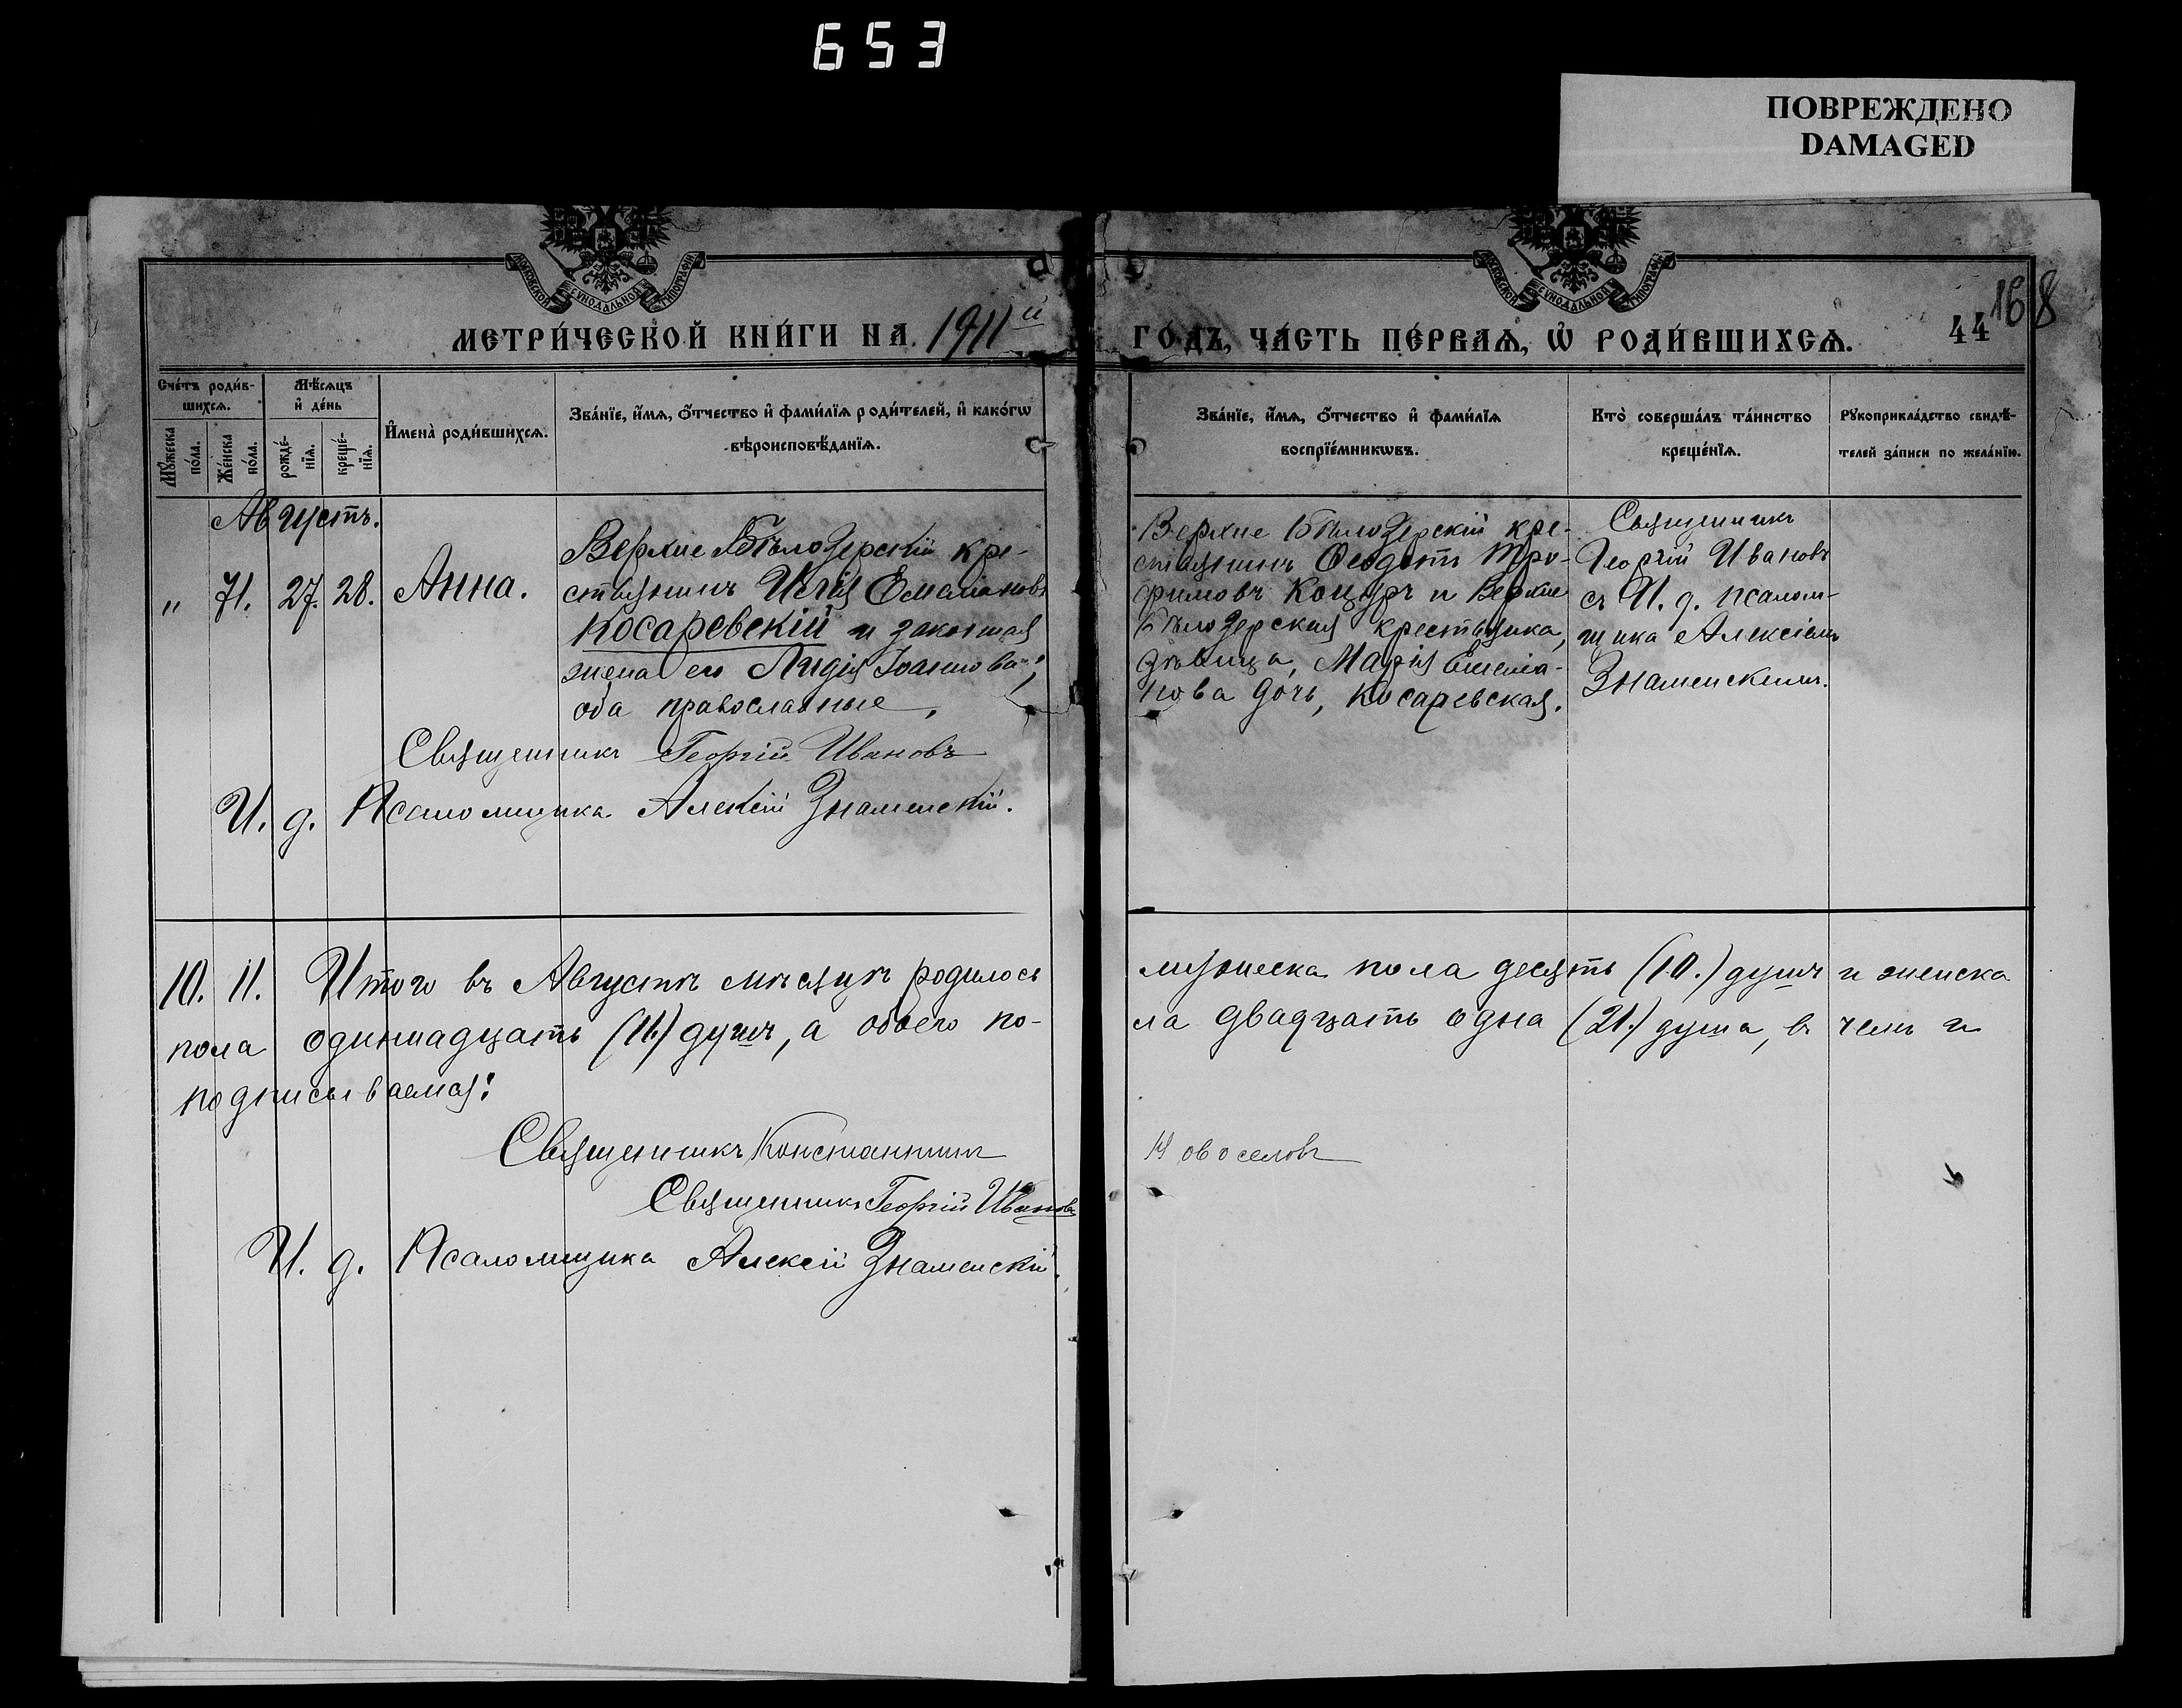 653
ПОВРЕЖДЕНО
DAMAGED
МОСКОВСКОЙ СѴНОДАЛЬНОЙ ТИПОГРАФІИ
МОСКОВСКОЙ СѴНОДАЛЬНОЙ ТИПОГРАФІИ
МЕТРИ́ЧЕСКОЙ КНИ́ГИ НА 1911й
ГО́ДЪ, ЧА́СТЬ ПЕ́РВАѦ, Ѡ҆ РОДИ́ВШИХСѦ.
44
168
Сче́тъ роди́в-
шихсѧ.
Мꙋ́жеска по́ла.
Же́нска по́ла.
Мѣ́сѧцъ
и҆ де́нь
рожде́-нїѧ.
креще́-нїѧ.
И҆мена̀ роди́вшихсѧ.
Зва́нїе, и҆́мѧ, ѻ҆́тчество и҆ фами́лїѧ роди́телей, и҆ како́гѡ
вѣроисповѣ́данїѧ.
Зва́нїе, и҆́мѧ, ѻ҆́тчество и҆ фами́лїѧ
воспрїе́мникѡвъ.
Кто̀ соверша́лъ та́инство
креще́нїѧ.
Рꙋкоприкла́дство свидѣ́-
телей за́писи по жела́нїю.
Августъ.
" 71. 27. 28. Анна.
Верхне Бѣлозерскій кре-
стьянинъ Илія Емеліановъ
Косаревскій и законная
жена его Лидія Іоаннова;
оба православные.
Верхне Бѣлозерскій кре-
стьянинъ Феодотъ Тро-
фимовъ Коцуръ и Верхне
Бѣлозерская крестьянка,
дѣвица, Марія Емеліа-
нова дочь, Косаревская.
Священникъ
Георгій Ивановъ
съ И. д. псалом-
щика Алексіемъ
Знаменскимъ.
Священникъ Георгій Ивановъ
И. д. Псаломщика Алексій Знаменскій.
10. 11. Итого въ Августѣ мѣсяцѣ родилось мужеска пола десять (10.) душъ и женска
пола одиннадцать (11.) душъ, а обоего по-ла двадцать одна (21.) душа, въ чемъ и
подписываемся:
Священникъ Константинъ Новоселовъ
Священникъ Георгій Ивановъ
И. д. Псаломщика Алексій Знаменскій.